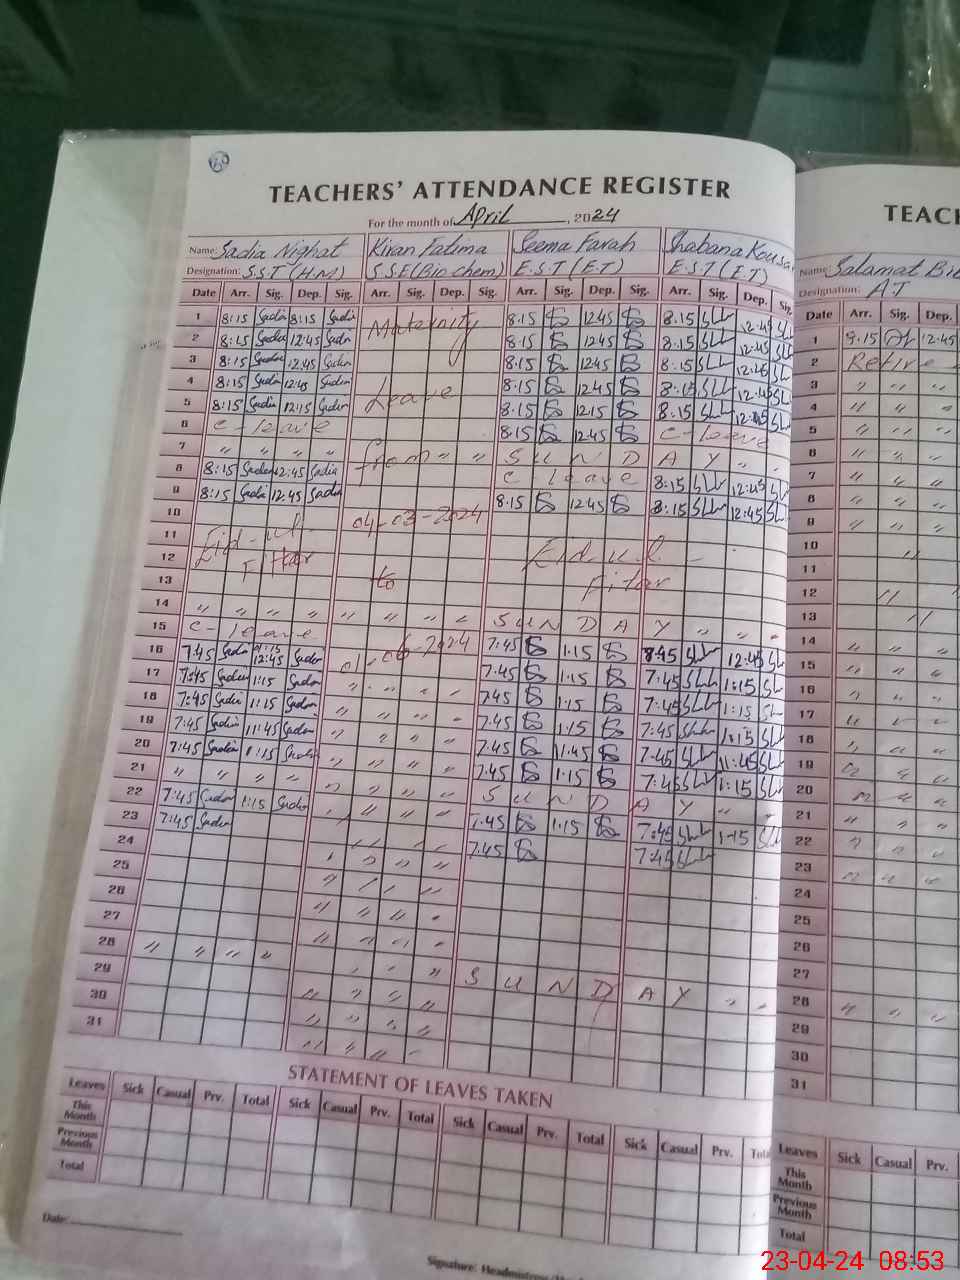 TEACHERS' ATTENDANCE REGISTER
For the month of April, 2024
Name: Sadia Nighat Kiran Fatima Seema Farah Shabana Kousar
Designation: S.S.T (H.M) S.S.E (Bio chem) E.S.T (E.T) E.S.T (E.T)
Date Arr. Sig. Dep. Sig. Arr. Sig. Dep. Sig. Arr. Sig. Dep. Sig. Arr. Sig. Dep. Sig.
1 8:15 Sadia 8:15 Sadia Maternity 8.15 12.45 8.15 12:45
2 8:15 Sadia 12:45 Sadia 8.15 12.45 8.15 12:45
3 8:15 Sadia 12.45 Sadia 8.15 12.45 8.15 12:45
4 8:15 Sadia 12:45 Sadia Leave 8.15 12.45 8.15 12:45
5 8:15 Sadia 12:15 Sadia 8.15 12.15 8.15
6 C-leave 8.15 12.45 C-leave
7 " " " " from " " S U N D A Y " "
8 8:15 Sadia 12:45 Sadia C-leave 8.15 12:45
9 8:15 Sadia 12.45 Sadia 8.15 12.45 8.15 12:45
10 04-03-2024
11 Eid-ul Eid.u.l.
12 Fitar Fitar
13 to
14 " " " " " " " " S U N D A Y " " "
15 C-leave
16 7:45 Sadia 12:45 Sadia 01-06-2024 7:45 1:15 8:45 12:45
17 7:45 Sadia 1:15 Sadia " " " " 7.45 1.15 7:45 1:15
18 7:45 Sadia 1:15 Sadia " " " " 7.45 1.15 7:45 1:15
19 7:45 Sadia 11:45 Sadia " " " " 7.45 1.15 7:45 1:15
20 7:45 Sadia 1:15 Sadia " " " " 7.45 11.45 7:45 11:45
21 " " " " " " " " 7.45 1.15 7:45 1:15
22 7:45 Sadia 1:15 Sadia " " " " S U N D A Y " "
23 7:45 Sadia " " " 7.45 1.15 7:45 1:15
24 " " " " 7.45 7:45
25 " " " "
26 " " " "
27 " " " "
28 " " " " " " " "
29 " " " S U N D A Y " "
30 " " " "
31 " " " "
STATEMENT OF LEAVES TAKEN
Leaves Sick Casual Prv. Total Sick Casual Prv. Total Sick Casual Prv. Total Sick Casual Prv. Total
This Month
Previous Month
Total
Date:
Signature: Headmistress/
TEACH
Name: Salamat Bib
Designation: A.T
Date Arr. Sig. Dep.
1 8.15 12:45
2 Retire
3 " " "
4 " " "
5 " " "
6 " " "
7 " " "
8 " " "
9 " " "
10 "
11
12 "
13 "
14 " " "
15 " " "
16 " " "
17 " " "
18 " " "
19 " " "
20 " " "
21 " " "
22 " " "
23 " " "
24
25
26
27
28 " " "
29
30
31
Leaves Sick Casual Prv.
This Month
Previous Month
Total
23-04-24 08:53